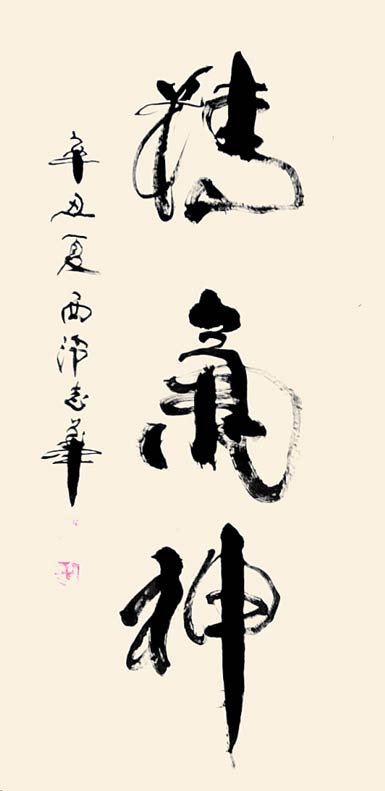 精氣神
辛丑夏西沛志華